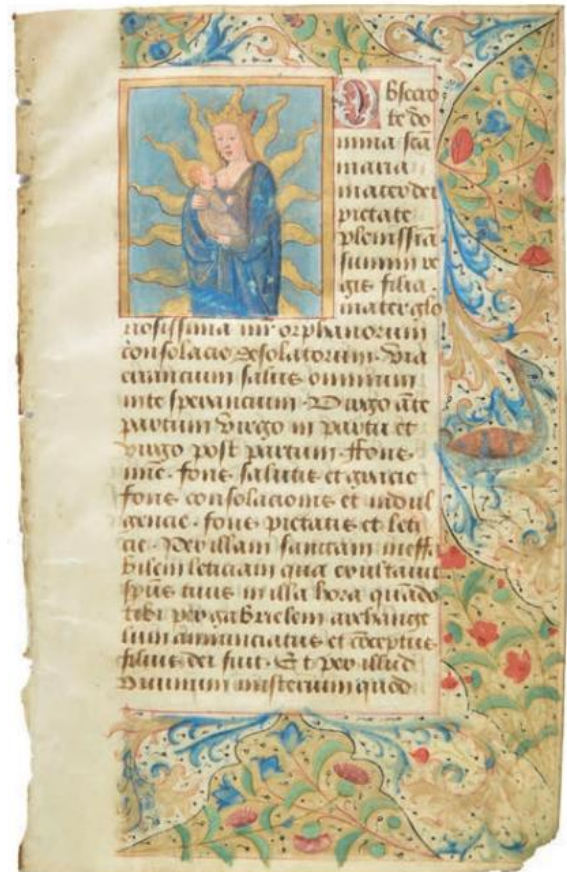 Obsecro
te do
mina scā
maria
mater dei
pietate
plenissīa
summi re
gis filia.
mater glo
riosissima mr̄ orphanorum
consolacio desolatorum. Via
errancium salus omnium
inte sperancium. Virgo āte
partum virgo in partu et
virgo post partum. Fons
mie. fons salutis et gracie
fons consolacionis et indul
gencie. fons pietatis et leti
cie. Per illam sanctam ineffa
bilem leticiam qua exultauit
spūs tuus in illa hora quādo
tibi per gabrielem archange
lum annunciatus et cōceptus
filius dei fuit. Et per illud
diuinum misterium quod